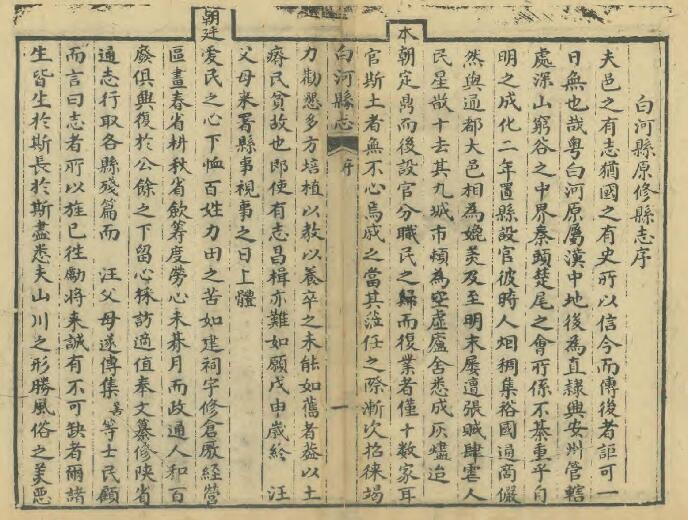 白河縣原修縣志序
夫邑之有志猶國之有史所以信今而傳後者詎可一
日無也哉粵白河原屬漢中地後為直隸興安州管轄
處深山窮谷之中界秦頭楚尾之會所係不綦重乎自
明之成化二年置縣設官彼時人烟稠集裕國通商儼
然與通都大邑相為媲美及至明末屢遭張賊肆害人
民星散十去其九城市頓為空虛廬舍悉成灰燼迨
本朝定鼎而後設官分職民之歸而復業者僅十數家耳
官斯土者無不心焉戚之當其蒞任之際漸次招徠竭
白河縣志
序
一
力勸懇多方培植以教以養卒之未能如舊者葢以土
瘠民貧故也即使有志昌楫亦難如願戊申歲給 汪
父母來署縣事視事之日上體
朝廷愛民之心下恤百姓力田之苦如建祠宇修倉厫經營
區畫春省耕秋省斂籌度勞心未朞月而政通人和百
廢俱興復於公餘之下留心採訪適值奉文纂修陝省
通志行取各縣殘篇而 汪父母遂傳集 等士民顧
而言曰志者所以旌已徃勵將來誠有不可缺者爾諸
生皆生於斯長於斯盡悉夫山川之形勝風俗之美惡